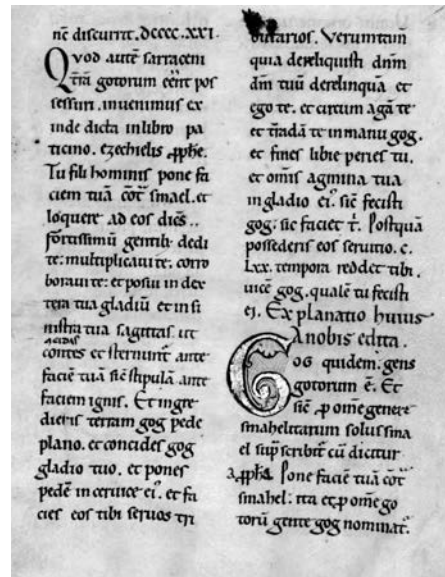 nc̄ discurrit. Dcccc.xxi.
Quod autē sarraceni
q̄ t̄rā gotorum eēnt pos
sessuri. inuenimus ex
inde dicta in libro pa
ticino. ezechielis ꝓphe.
Tu fili hominis pone fa
ciem tuā cōt̄ smael. et
loquere ad eos diēs..
fortissimū gentib; dedi
te: multiplicaui te: corro
boraui te: et posui in dex
tera tua gladiū et in si
nistra tua sagittas. ut
contes et sternunt̄ ante
faciē tuā sic̄ stipulā ante
faciem ignis. Et ingre
dieris terram gog pede
plano. et concides gog
gladio tuo. et pones
pedē in ceruice ei'. et fa
cies eos tibi seruos tri
butarios. Verumtam
quia dereliquisti dnm̄
dm̄ tuū derelinquā et
ego te. et circum agā te
et t̄adā te in manu gog.
et fines libie peries tu.
et om̄is agmina tua
in gladio ei'. sic̄ fecisti
gog: sic faciet t̄. Postquā
possederis eos seruitio. c.
Lxx. tempora reddet tibi
uicē gog. qualē tu fecisti
ei. Explanatio huius
A nobis edita.
Gog quidem. gens
gotorum ē. Et
sic̄ ꝓ om̄e genere
smahelitarum solus sma
el sup̄ scribit̄ cū dicitur
a ꝓpha Pone faciē tuā cōt̄
smahel: ita et ꝓ om̄e go
torū gente gog nominat̄.